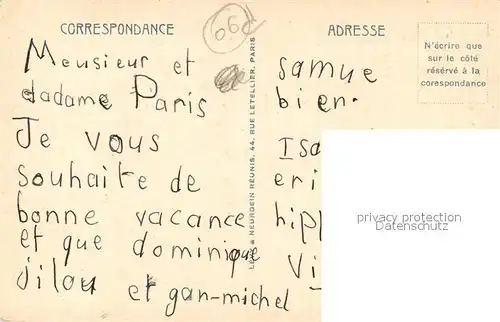 CORRESPONDANCE
ADRESSE
06d
N'écrire que
sur le côté
réservé à la
corespondance
Meusieur et
dadame Paris
Je vous
souhaite de
bonne vacance
et que dominique
jilou et gan-michel
LÉVY & NEURDEIN RÉUNIS, 44, RUE LETELLIER, PARIS
samue
bien.
Isa
eri
hipp
Vi
privacy protection
Datenschutz